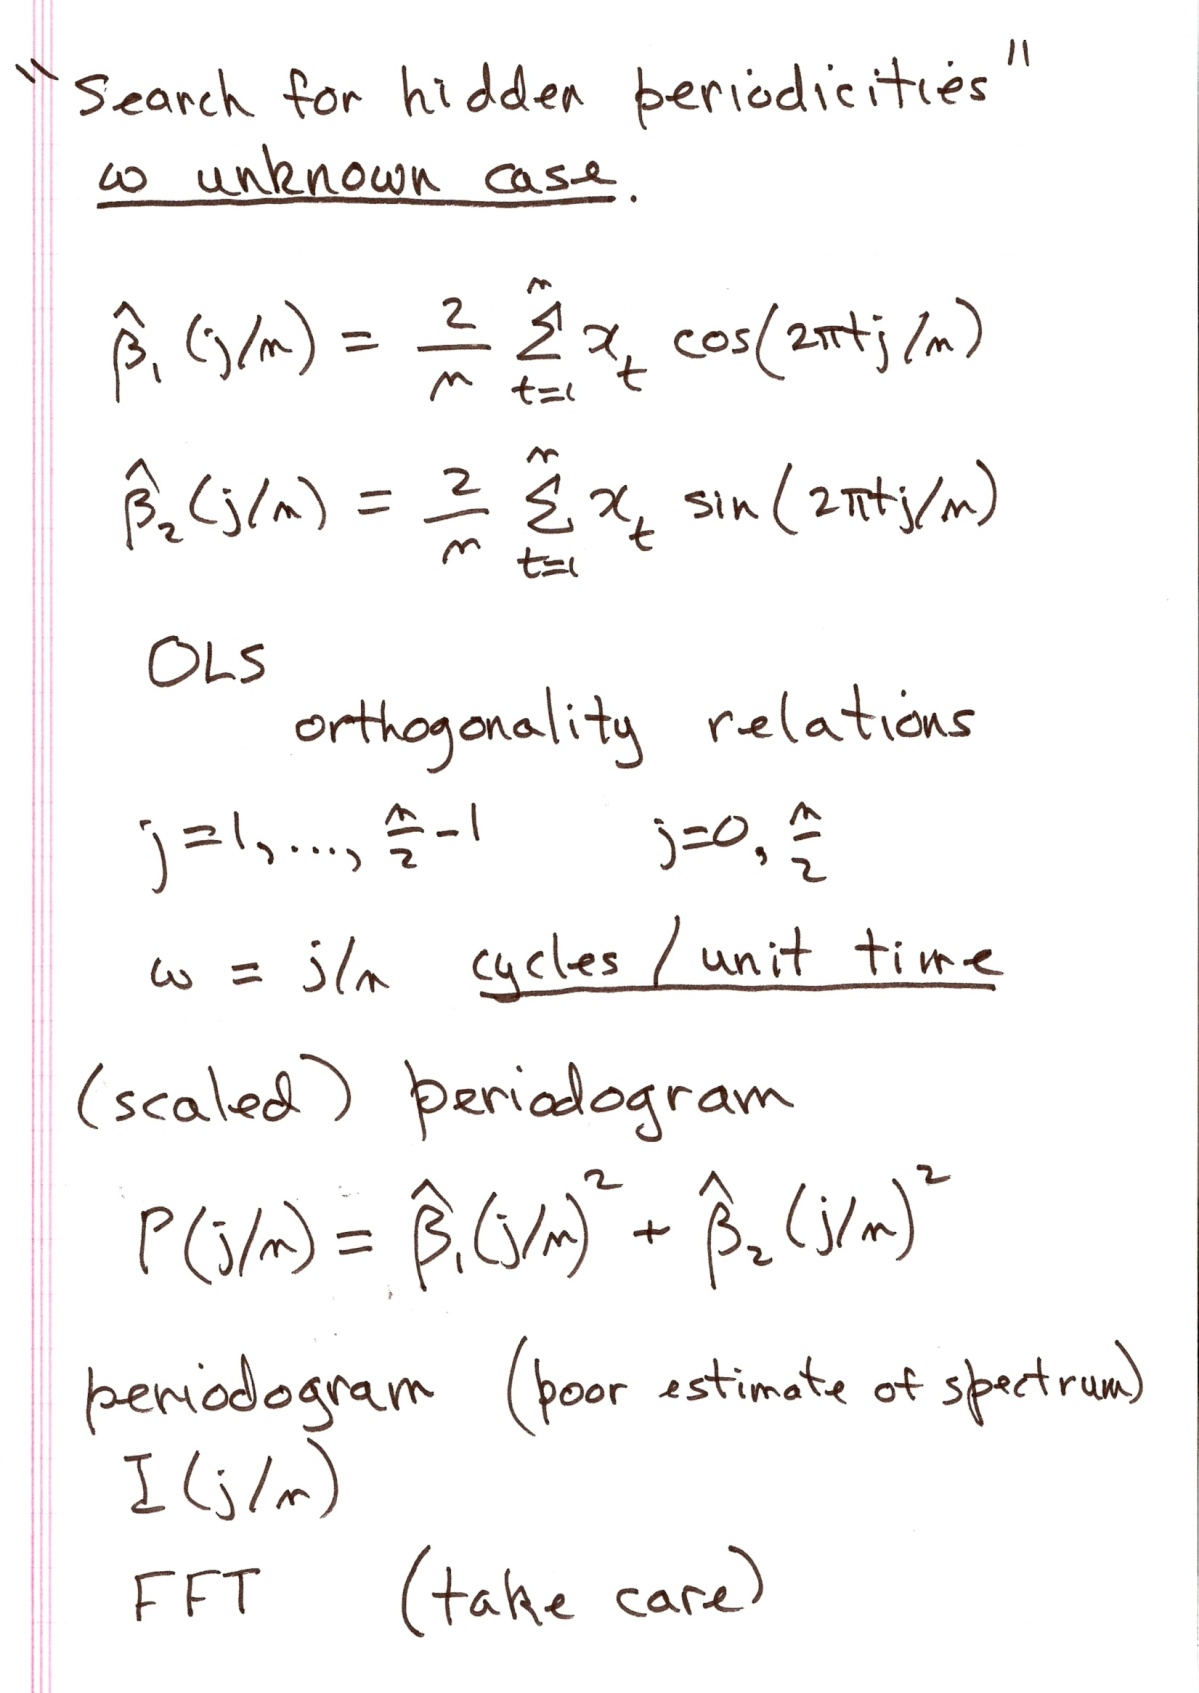 "Search for hidden periodicities"
ω unknown case.
β̂₁(j/n) = 2/n Σ_{t=1}^{n} x_t cos(2πtj/n)
β̂₂(j/n) = 2/n Σ_{t=1}^{n} x_t sin(2πtj/n)
OLS
orthogonality relations
j=1,..., n/2 -1 j=0, n/2
ω = j/n cycles / unit time
(scaled) periodogram
P(j/n) = β̂₁(j/n)² + β̂₂(j/n)²
periodogram (poor estimate of spectrum)
I(j/n)
FFT (take care)